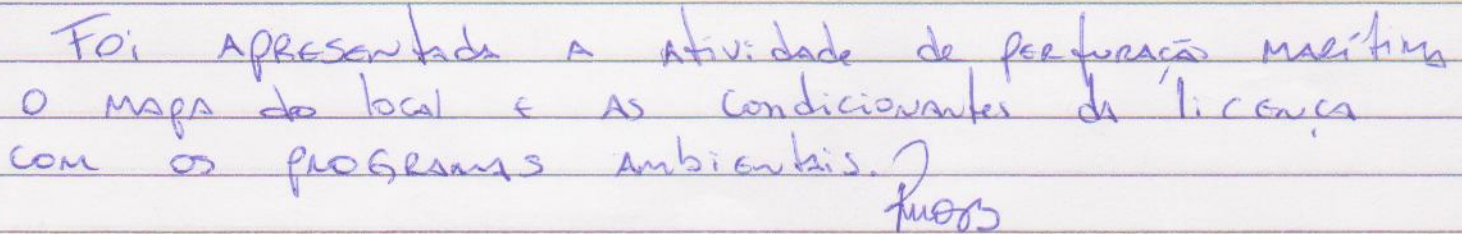 Foi apresentada a atividade de perfuração marítima
o mapa do local e as condicionantes da licença
com os programas ambientais.